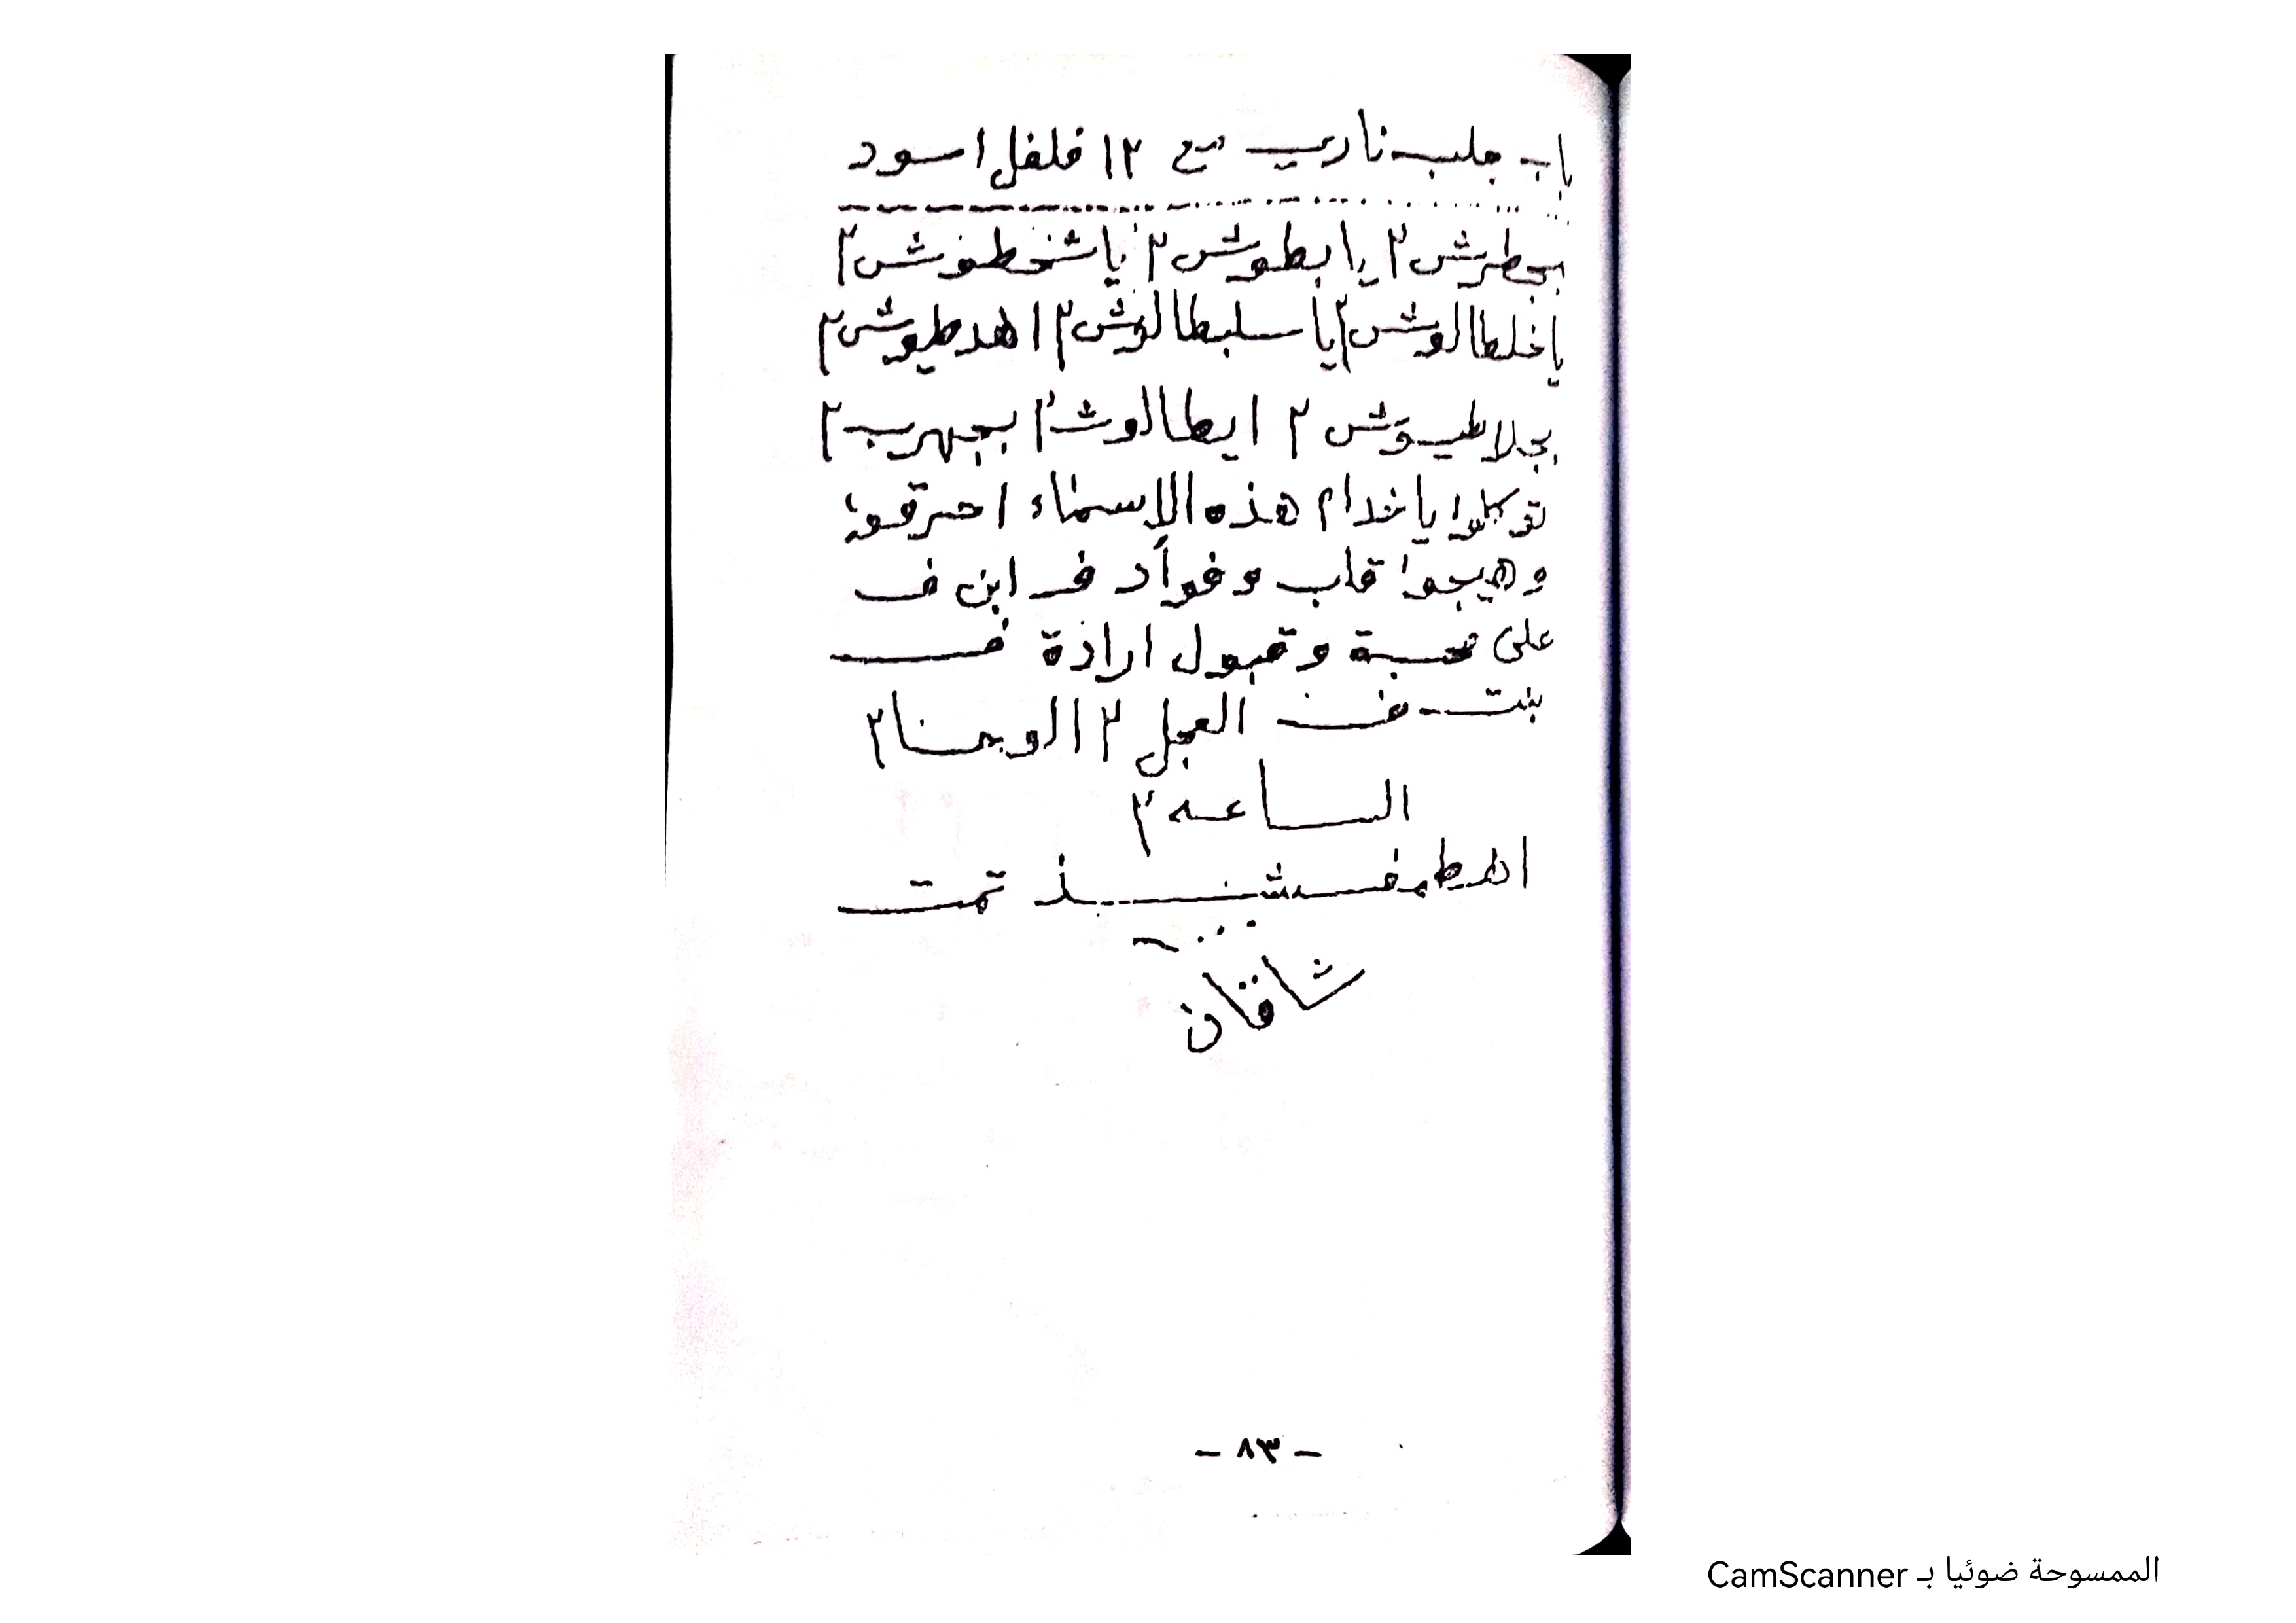 باب جلب ناري مع ١٢ فلفل اسود
بجطرش ٢ يا بطوش ٢ يا شخطوش ٢
يا خلطالوش ٢ يا سلبطالوش ٢ اهدطيوش ٢
بجلاطيوش ٢ ايطالوش ٢ بجهرب ٢
توكلوا يا خدام هذه الاسماء احرقو
وهيجوا قلب وفوأد ف ابن ف
على محبة وقبول ارادة ف
بنت ف العجل ٢ الوحا ٢
الساعه ٢
تمت
شاقان
- ٨٣ -
الممسوحة ضوئيا بـ CamScanner